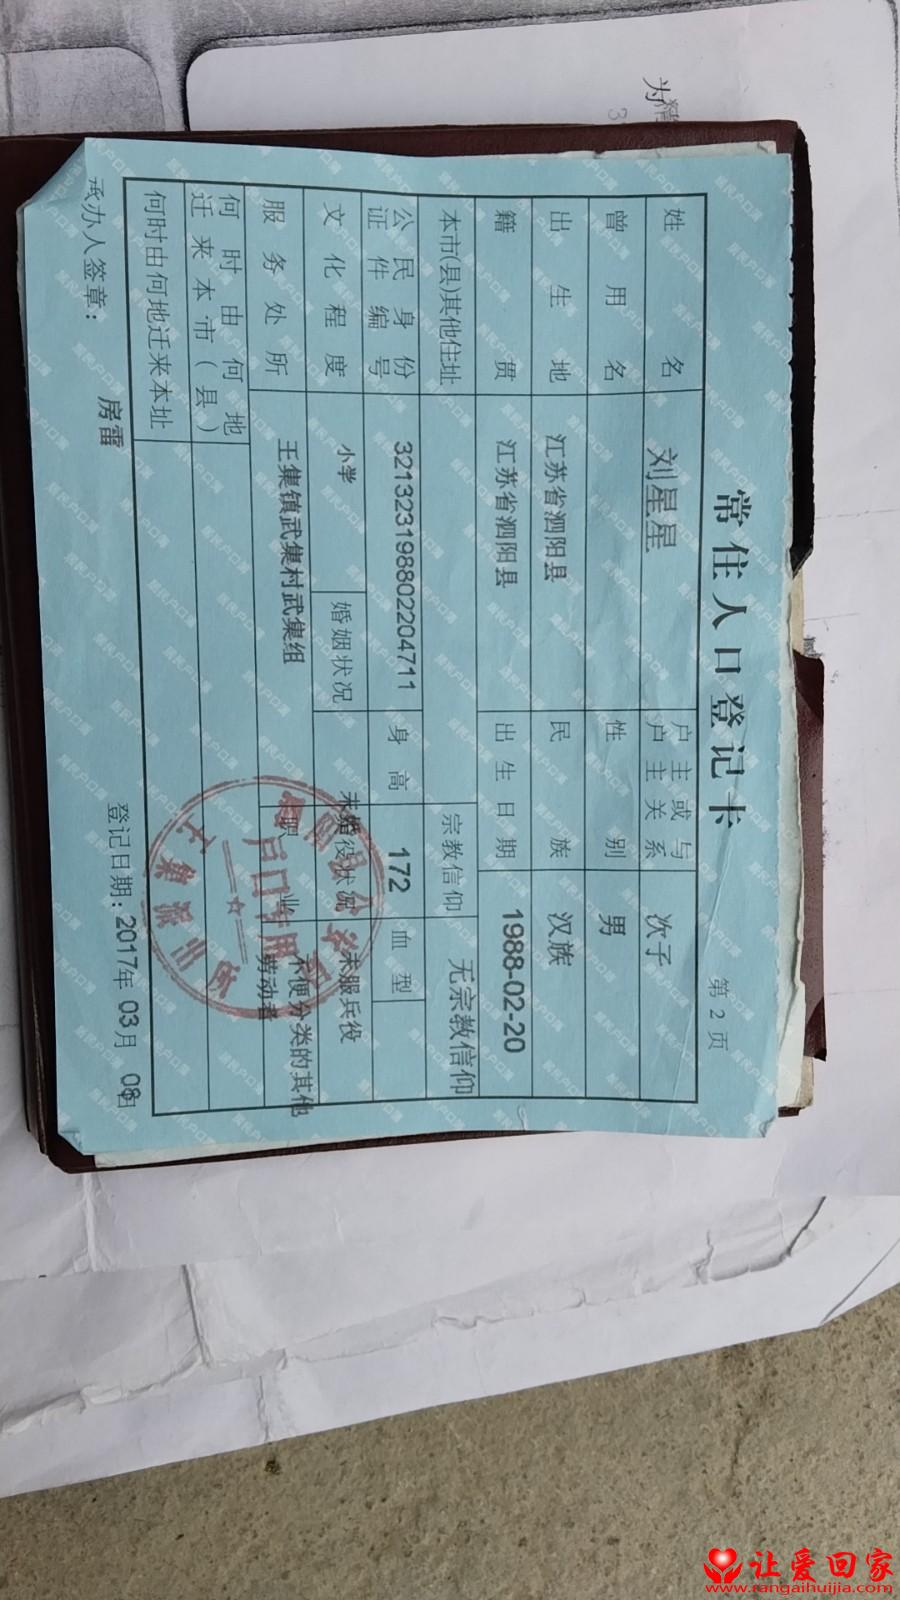 常住人口登记卡
第 2 页
姓名 刘星星 户主或与户主关系 次子
曾用名 性别 男
出生地 江苏省泗阳县 民族 汉族
籍贯 江苏省泗阳县 出生日期 1988-02-20
本市(县)其他住址 宗教信仰 无宗教信仰
公民身份证件编号 321323198802204711 身高 172 血型
文化程度 小学 婚姻状况 未婚 兵役状况 未服兵役
服务处所 王集镇武集村武集组 职业 不便分类的其他劳动者
何时由何地迁来本市(县)
何时由何地迁来本址
承办人签章: 房雷 登记日期: 2017年 03月 08日
户口专用
王集派出所
让爱回家
www.rangaihuijia.com